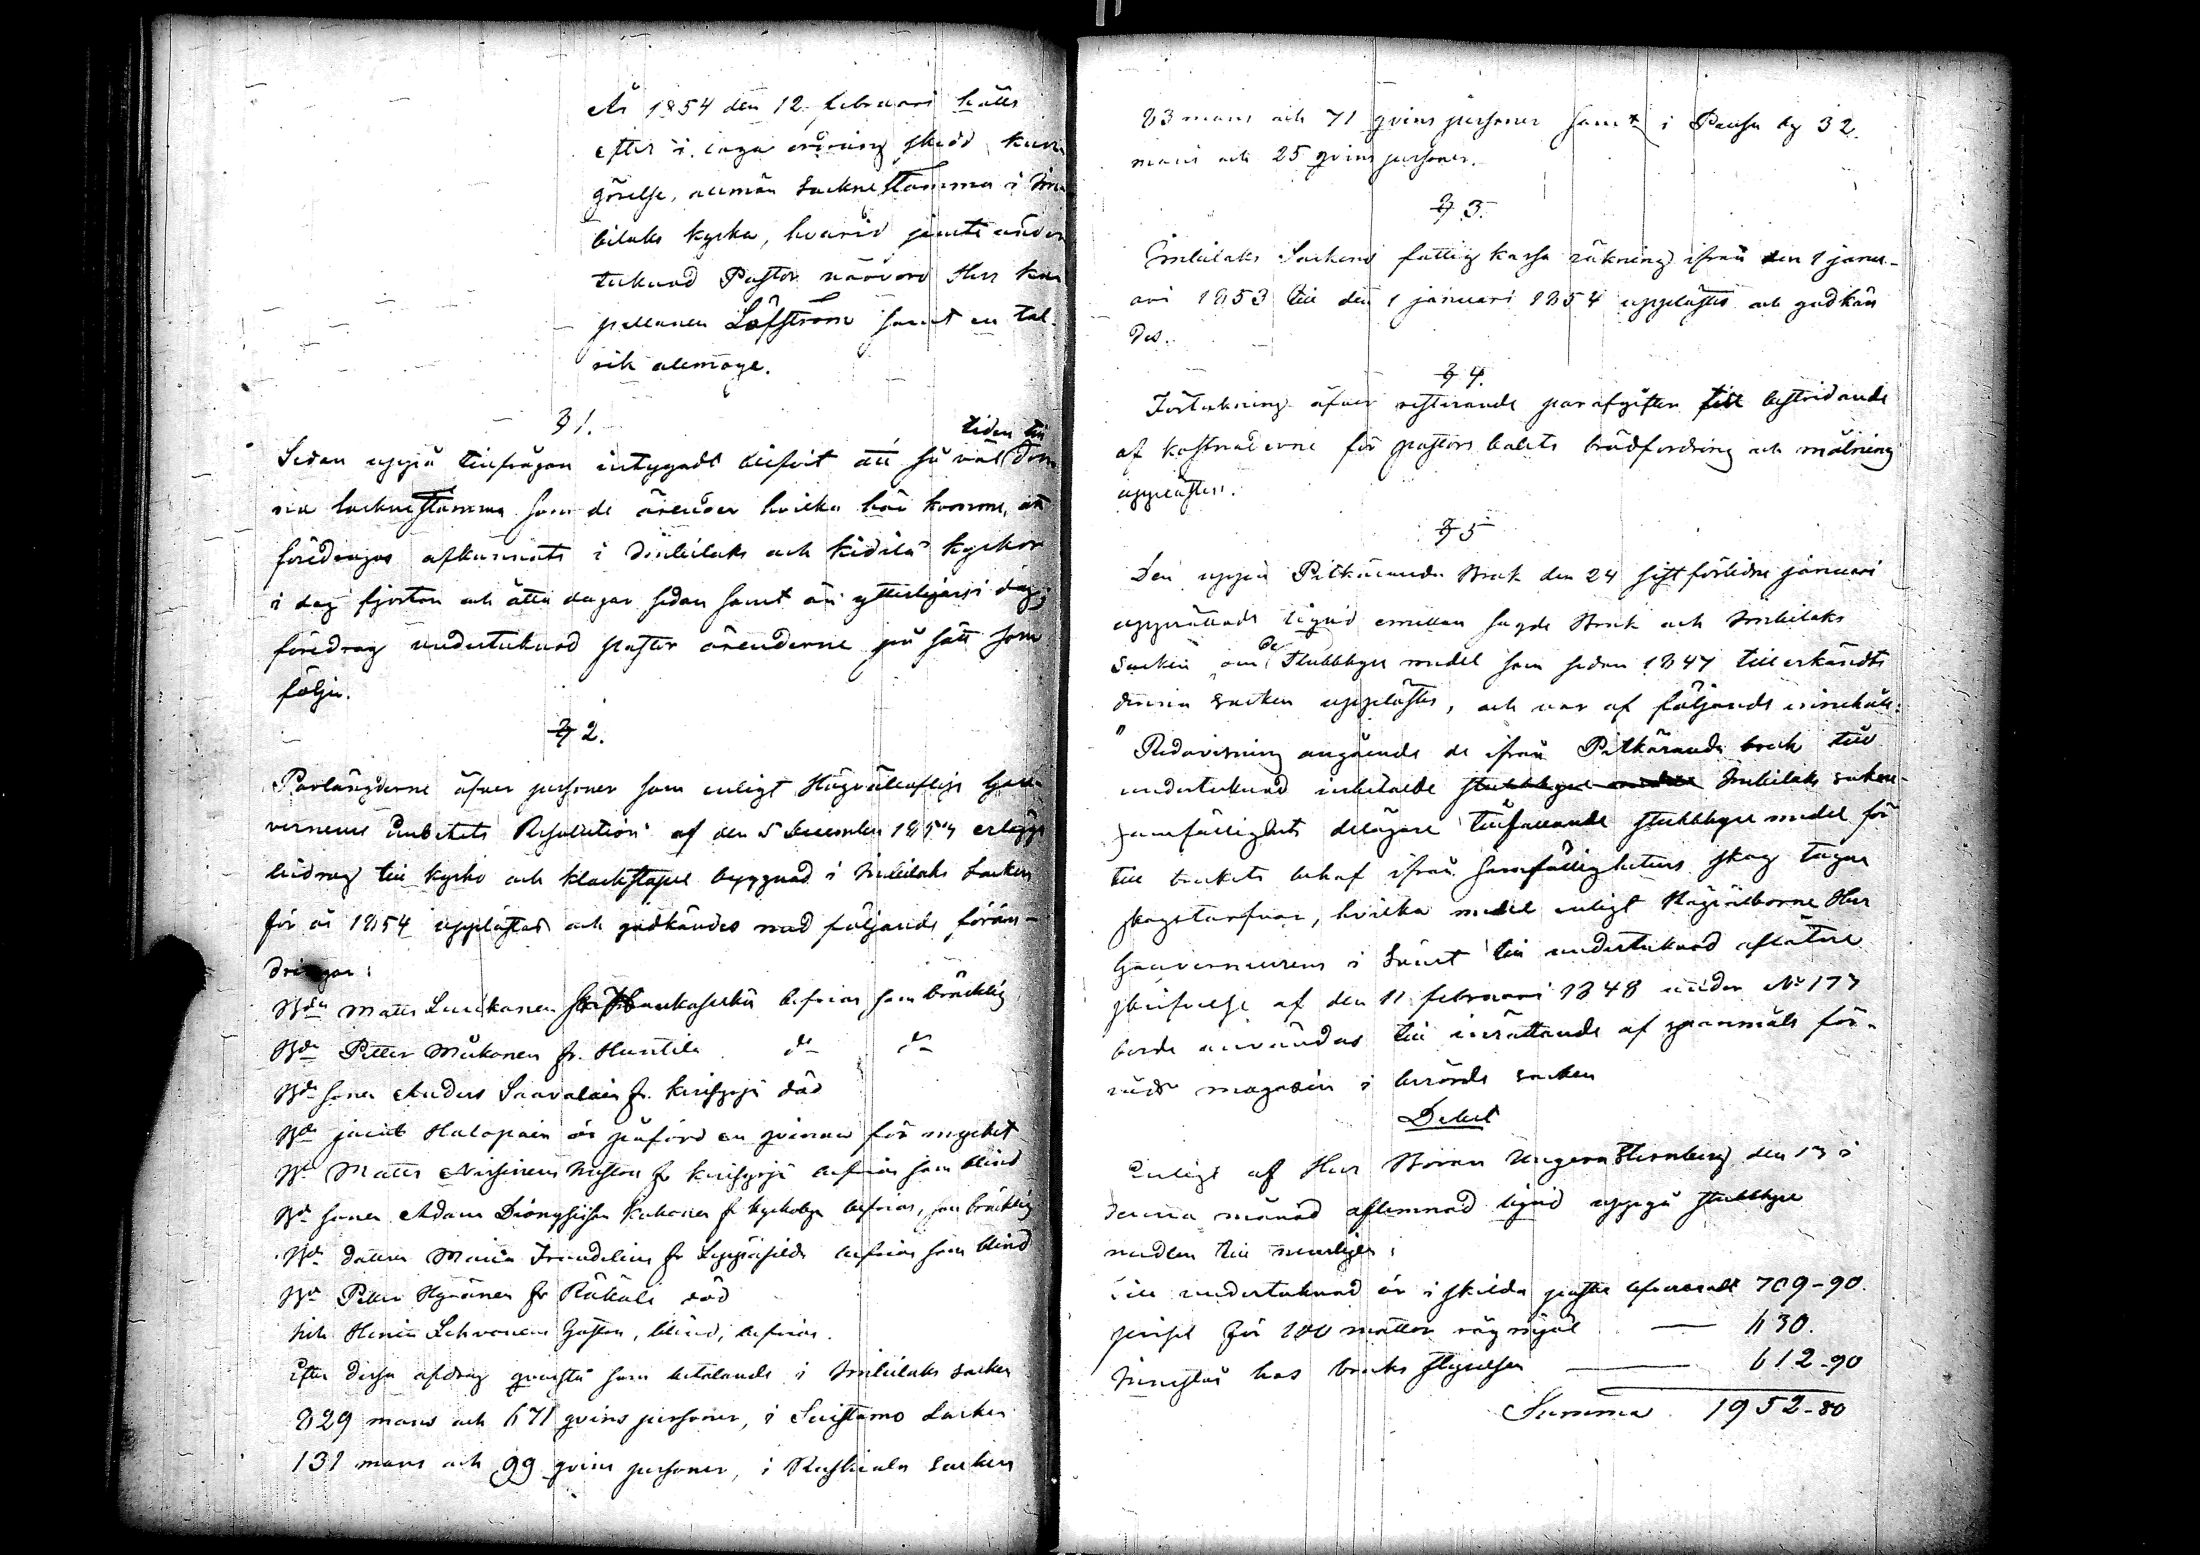 År 1854 den 12 februari hölls
efter i laga ordning skedd kun
görelse, allmän Sockne stämma i Im
bilaks kyrka, hvarvid jemte under
tecknad Pastor närvoro Herr ka
pellanen Löfström samt en tal-
rik allmoge.
§ 1.
tiden till
Sedan uppå tillfrågan intygadt blifvit att så väl den
na sockne stämma som de ärender hvilka här komma att
föredragas afkunnats i Imbilaks och Kidilä kyrkor
i dag fjorton och åtta dagar sedan samt än ytterligare i dag;
föredrog undertecknad pastor ärenderne på sätt som
följer.
§ 2.
Parlängderne öfver personer som enligt Högvällofliga Gou
vernements Embetets Resolution af den 5 December 1854 erlägga
bidrag till kyrko och klockstapel byggnad i Imbilaks Socken
för år 1854 upplästes och godkändes med följande förän-
dringar:
Bdn Matts Luukanen fr befrias som bräcklig
Bdn Petter Mükonen fr. Huntila do do
Bde sonen Anders Saavalain fr. Kirisyrjä död
Bdn Jacob Halopain är påförd en qvinna för mycket
Bd Matts Nissinens hustru fr Kirisyrjä befrias som blind
Bde sonen Adam Dionysiison Kakonen fr kyrkoby befrias, som bräcklig
Bde dottren Maria Trundelin fr Leppäsildä befrias som blind
Bde Petter Hyvönen fr Räkäli död
Inh Henric Lehvonens hustru, blind, befrias.
Efter dessa afdrag qvarstå som betalande i Imbilaks socken
829 mans och 671 qvins personer, i Suistamo Socken
131 mans och 99 qvins personer, i Ruskiala socken
83 mans och 71 qvins personer samt i Pensa by 32
mans och 25 qvins personer.
§ 3.
Imbilaks Sockens fattig kassa räkning ifrån den 1 janu-
ari 1853 till den 1 januari 1854 upplästes och godkän
des.
§ 4.
Förteckning öfver resterande par afgifter till bestridande
af kostnaderne för pastors bolets brädfordring och målning
upplästes.
§ 5
Den uppå Pitkäranda Bruk den 24 sist förlidne januari
upprättade liqvid emellan sagde Bruk och Imbilaks
Socken om de Stubbhyre medel som sedan 1847 tillerkändts
denna socken upplästes, och var af följande innehåll:
"Redovisning angående de ifrån Pitkäranda bruk till
undertecknad inbetalde stubbhyre medel Imbilaks socken-
samfällighets delägare tillfallande stubbhyre medel för
till brukets behof ifrån samfällighetens skog tagne
skogstarfvor, hvilka medel enligt Högvälborne Herr
Gouverneurens i Länet till undertecknad aflåtne
skrifvelse af den 11 februari 1848 under No 177
borde användas till inrättande af spanmåls för-
råds magasin i berörde socken
Debet
Enligt af Herr Baron Ungern Sternberg den 13 i
denna månad aflemnad liqvid uppgå stubbhyre
medlen till nemligen:
Till undertecknad är i skilda poster 709-90.
priset för 100 mattor rågmjöl — 630.
Innestår hos bruks styrelsen — 612-90
Summa 1952-80